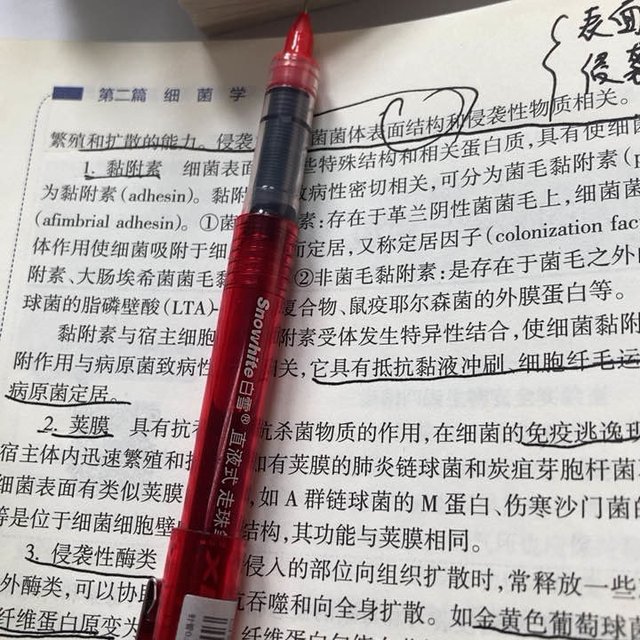 表面
侵袭
第二篇 细菌学
繁殖和扩散的能力。侵袭 菌菌体表面结构和侵袭性物质相关。
1. 黏附素 细菌表面 些特殊结构和相关蛋白质,具有使细菌
为黏附素(adhesin)。黏附 致病性密切相关,可分为菌毛黏附素(
(afimbrial adhesin)。①菌 素:存在于革兰阴性菌菌毛上,细菌菌
体作用使细菌吸附于细 而定居,又称定居因子(colonization fac
附素、大肠埃希菌菌毛黏 ②非菌毛黏附素:是存在于菌毛之外
球菌的脂磷壁酸(LTA)- 复合物、鼠疫耶尔森菌的外膜蛋白等。
黏附素与宿主细胞 附素受体发生特异性结合,使细菌黏附
附作用与病原菌致病性 相关,它具有抵抗黏液冲刷、细胞纤毛运
病原菌定居。
2. 荚膜 具有抗 抗杀菌物质的作用,在细菌的免疫逃逸现
宿主体内迅速繁殖和扩 如有荚膜的肺炎链球菌和炭疽芽胞杆菌
细菌表面有类似荚膜 ,如 A 群链球菌的 M 蛋白、伤寒沙门菌的
等是位于细菌细胞壁 结构,其功能与荚膜相同。
3. 侵袭性酶类 侵入的部位向组织扩散时,常释放一些
外酶类,可以协 抗吞噬和向全身扩散。如金黄色葡萄球
纤维蛋白原变为
Snowhite 白雪® 直液式 走珠